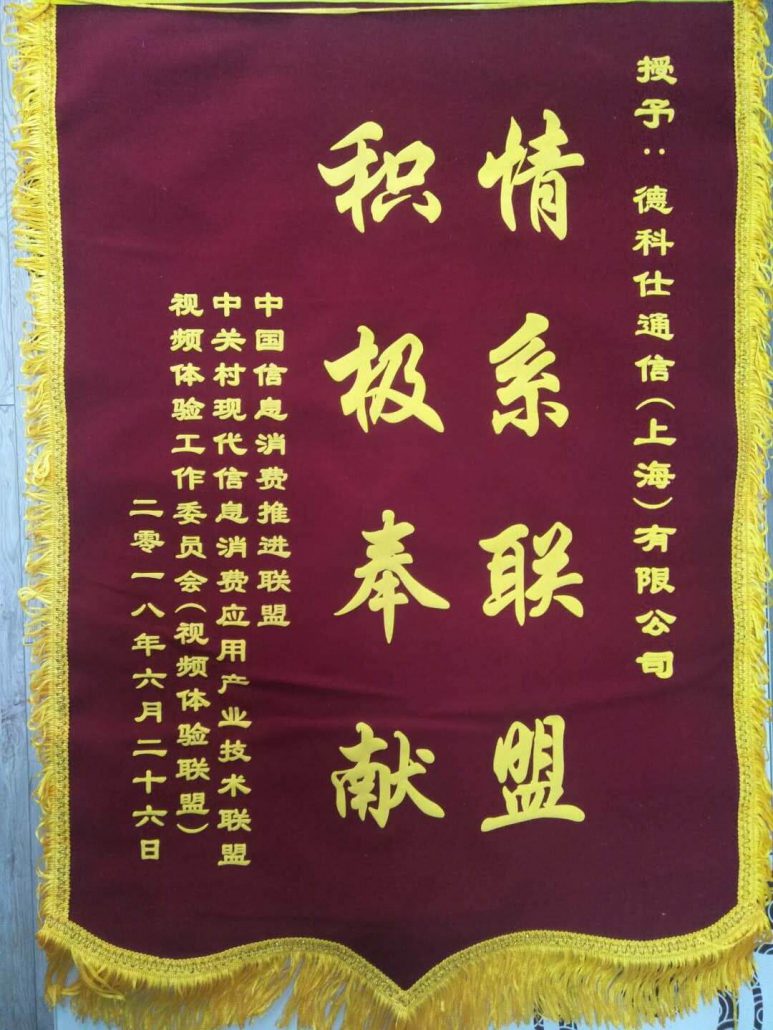 授予：德科仕通信(上海)有限公司
情系联盟
积极奉献
中国信息消费推进联盟
中关村现代信息消费应用产业技术联盟
视频体验工作委员会(视频体验联盟)
二零一八年六月二十六日